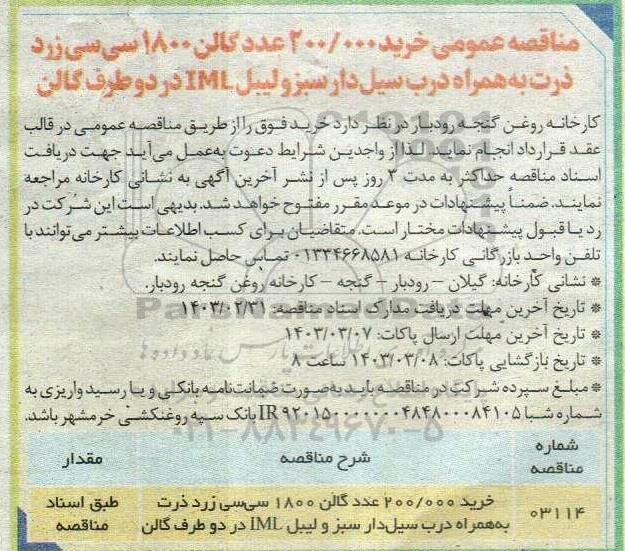 مناقصه عمومی خرید ۲۰۰/۰۰۰ عدد گالن ۱۸۰۰ سی‌سی زرد
ذرت به‌همراه درب سیل‌دار سبز و لیبل IML در دو طرف گالن
کارخانه روغن گنجه رودبار در نظر دارد خرید فوق را از طریق مناقصه عمومی در قالب
عقد قرارداد انجام نماید. لذا از واجدین شرایط دعوت به‌عمل می‌آید جهت دریافت
اسناد مناقصه حداکثر به مدت ۳ روز پس از نشر آخرین آگهی به نشانی کارخانه مراجعه
نمایند. ضمناً پیشنهادات در موعد مقرر مفتوح خواهد شد. بدیهی است این شرکت در
رد یا قبول پیشنهادات مختار است. متقاضیان برای کسب اطلاعات بیشتر می‌توانند با
تلفن واحد بازرگانی کارخانه ۰۱۳۳۴۶۶۸۵۸۱ تماس حاصل نمایند.
* نشانی کارخانه: گیلان – رودبار – گنجه – کارخانه روغن گنجه رودبار.
* تاریخ آخرین مهلت دریافت مدارک اسناد مناقصه: ۱۴۰۳/۰۲/۳۱
* تاریخ آخرین مهلت ارسال پاکات: ۱۴۰۳/۰۳/۰۷
* تاریخ بازگشایی پاکات: ۱۴۰۳/۰۳/۰۸ ساعت ۸
* مبلغ سپرده شرکت در مناقصه باید به‌صورت ضمانت‌نامه بانکی و یا رسید واریزی به
شماره شبا IR ۹۲۰۱۵۰۰۰۰۰۰۰۴۸۴۸۰۰۰۸۴۱۰۵ بانک سپه روغنکشی خرمشهر باشد.
شماره مناقصه شرح مناقصه مقدار
۰۳۱۱۴ خرید ۲۰۰/۰۰۰ عدد گالن ۱۸۰۰ سی‌سی زرد ذرت طبق اسناد
به‌همراه درب سیل‌دار سبز و لیبل IML در دو طرف گالن مناقصه
ParsNamadData
۰۲۱-۸۸۳۴۹۶۷۰-۵